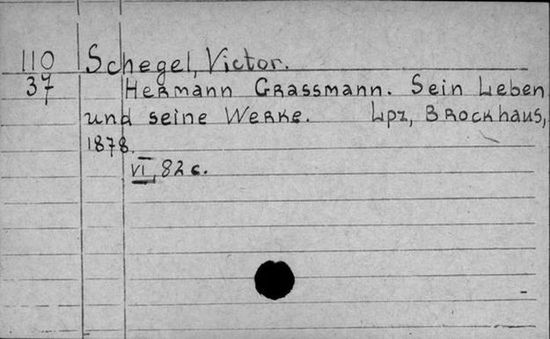 110 Schegel, Victor.
37 Hermann Grassmann. Sein Leben
und seine Werke. Lpz, Brockhaus,
1878.
VI, 82 c.